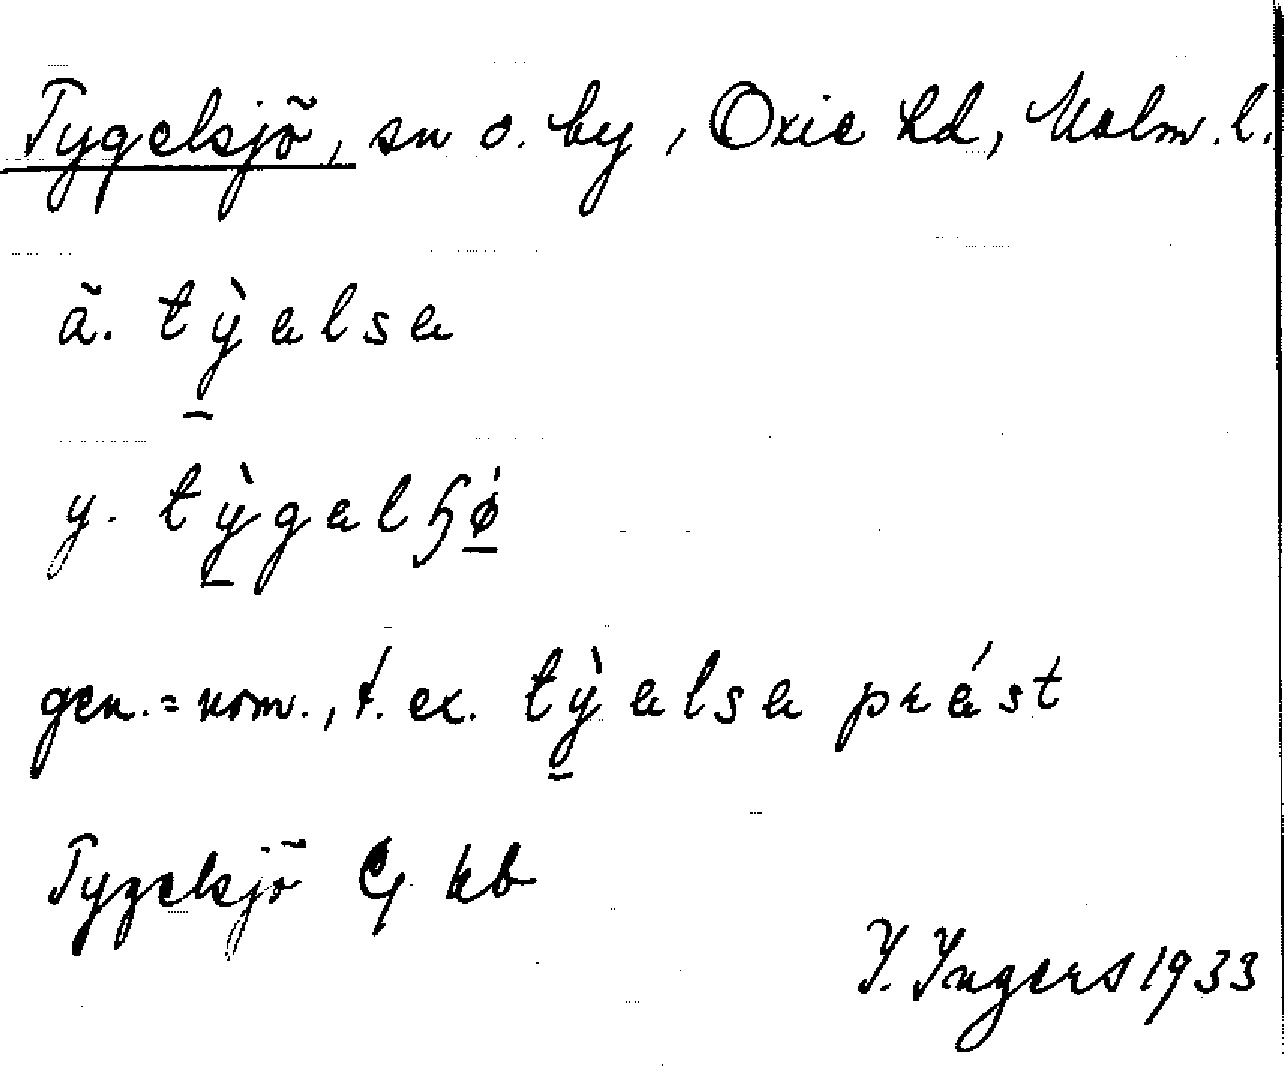 Tygelsjö, sn o. by, Oxie hd, Malm. l.
ä. tỳ̱alsa
y. tỳ̱galɧǿ̱
gen. = nom., t. ex. tỳ̱alsa prást
Tygelsjö Gj kb
I. Ingers 1933